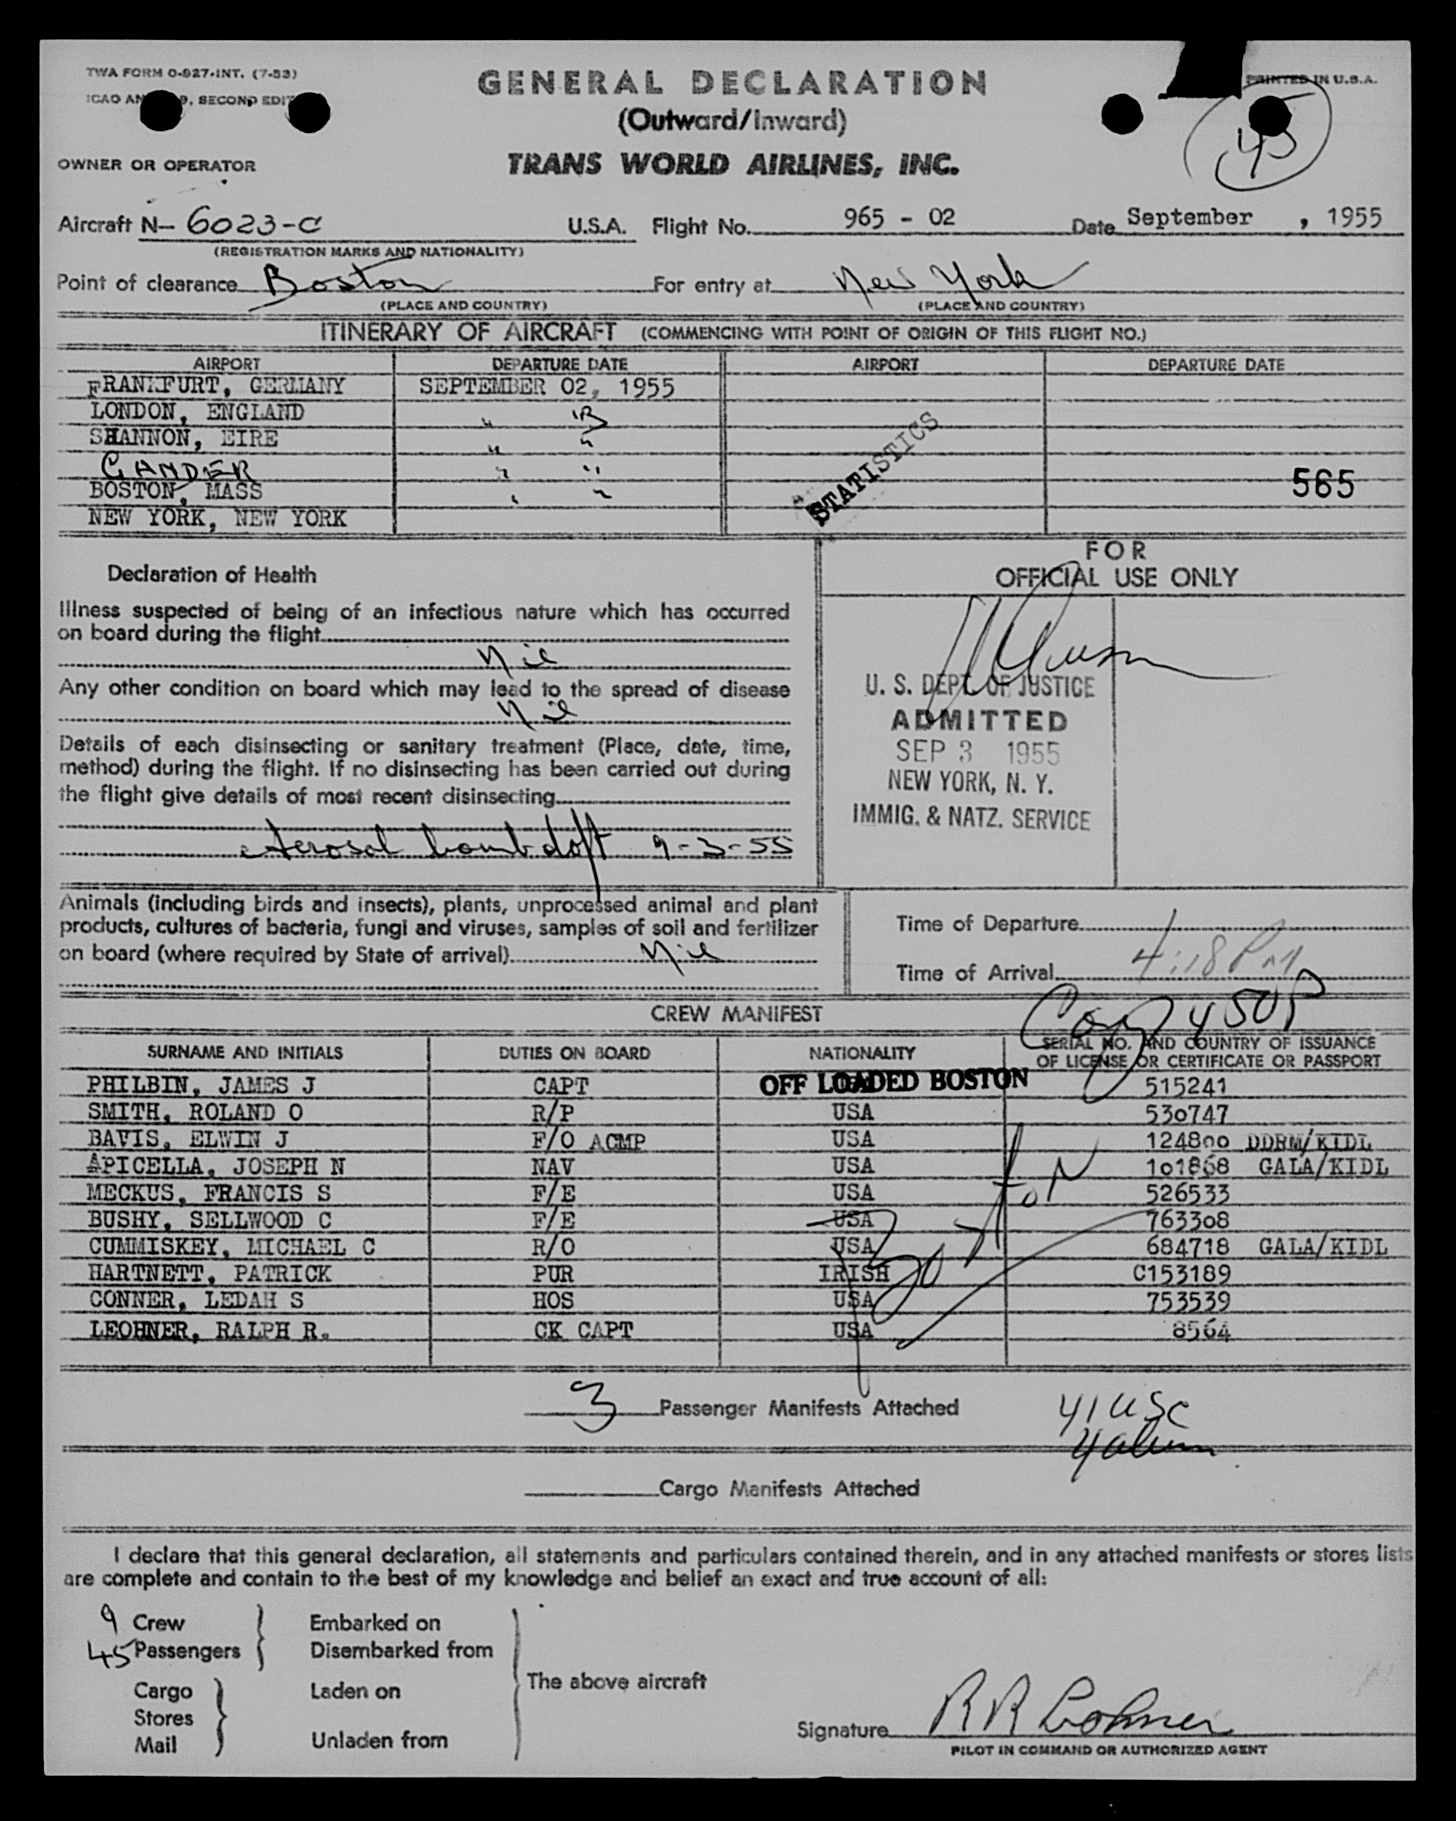 TWA FORM O-927-INT. (7-53)
PRINTED IN U.S.A.
ICAO AN 9, SECOND EDIT
GENERAL DECLARATION
(Outward/Inward)
45
OWNER OR OPERATOR
TRANS WORLD AIRLINES, INC.
Aircraft N- 6023-C U.S.A. Flight No. 965 - 02 Date September , 1955
(REGISTRATION MARKS AND NATIONALITY)
Point of clearance Boston For entry at New York
(PLACE AND COUNTRY) (PLACE AND COUNTRY)
ITINERARY OF AIRCRAFT (COMMENCING WITH POINT OF ORIGIN OF THIS FLIGHT NO.)
AIRPORT DEPARTURE DATE AIRPORT DEPARTURE DATE
FRANKFURT, GERMANY SEPTEMBER 02, 1955
LONDON, ENGLAND " "
SHANNON, EIRE " "
GANDER " "
BOSTON, MASS " "
NEW YORK, NEW YORK
STATISTICS
565
Declaration of Health
FOR
OFFICIAL USE ONLY
Illness suspected of being of an infectious nature which has occurred
on board during the flight
Nil
Any other condition on board which may lead to the spread of disease
Nil
Details of each disinsecting or sanitary treatment (Place, date, time,
method) during the flight. If no disinsecting has been carried out during
the flight give details of most recent disinsecting
Aerosol bomb 9-3-55
U. S. DEPT. OF JUSTICE
ADMITTED
SEP 3 1955
NEW YORK, N. Y.
IMMIG. & NATZ. SERVICE
Animals (including birds and insects), plants, unprocessed animal and plant
products, cultures of bacteria, fungi and viruses, samples of soil and fertilizer
on board (where required by State of arrival) Nil
Time of Departure
Time of Arrival 4:18 PM
450P
CREW MANIFEST
SURNAME AND INITIALS DUTIES ON BOARD NATIONALITY SERIAL NO. AND COUNTRY OF ISSUANCE
OF LICENSE OR CERTIFICATE OR PASSPORT
PHILBIN, JAMES J CAPT OFF LOADED BOSTON 515241
SMITH, ROLAND O R/P USA 530747
BAVIS, ELWIN J F/O ACMP USA 124800 DDRM/KIDL
APICELLA, JOSEPH N NAV USA 101868 GALA/KIDL
MECKUS, FRANCIS S F/E USA 526533
BUSHY, SELLWOOD C F/E USA 763308
CUMMISKEY, MICHAEL C R/O USA 684718 GALA/KIDL
HARTNETT, PATRICK PUR IRISH C153189
CONNER, LEDAH S HOS USA 753539
LEOHNER, RALPH R. CK CAPT USA 8564
Boston
3 Passenger Manifests Attached
41 USC
4 alien
Cargo Manifests Attached
I declare that this general declaration, all statements and particulars contained therein, and in any attached manifests or stores lists
are complete and contain to the best of my knowledge and belief an exact and true account of all:
9 Crew Embarked on
45 Passengers Disembarked from
The above aircraft
Cargo Laden on
Stores
Mail Unladen from
Signature R R Lohner
PILOT IN COMMAND OR AUTHORIZED AGENT